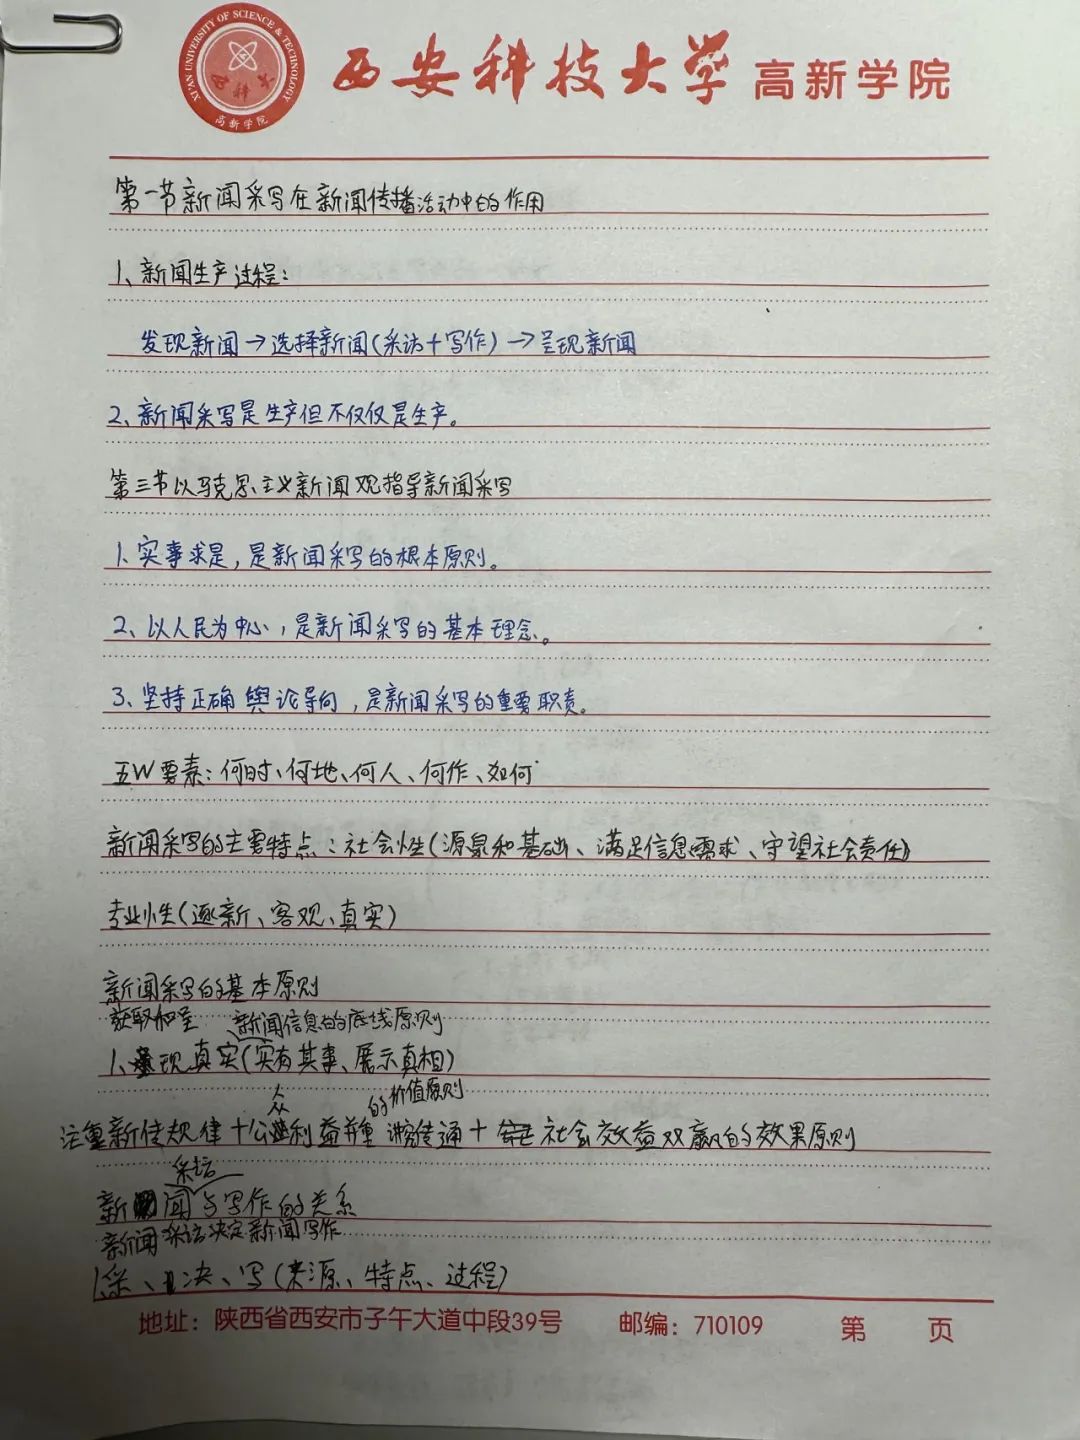 XI'AN UNIVERSITY OF SCIENCE & TECHNOLOGY
西科大
高新学院
西安科技大学 高新学院
第一节新闻采写在新闻传播活动中的作用
1、新闻生产过程:
发现新闻→选择新闻(采访+写作)→呈现新闻
2、新闻采写是生产但不仅仅是生产。
第三节以马克思主义新闻观指导新闻采写
1、实事求是,是新闻采写的根本原则。
2、以人民为中心,是新闻采写的基本理念。
3、坚持正确舆论导向,是新闻采写的重要职责。
五W要素:何时、何地、何人、何作、如何
新闻采写的主要特点:社会性(源泉和基础、满足信息需求、守望社会责任)
专业性(逐新、客观、真实)
新闻采写的基本原则
获取和呈 新闻信息的底线原则
1、现真实(实有其事、展示真相)
众 的价值原则
注重新传规律+公利益并重 传通+社会效益双赢的效果原则
采访
新闻与写作的关系
新闻采访决定新闻写作
1.采、决、写(来源、特点、过程)
地址:陕西省西安市子午大道中段39号 邮编:710109 第 页